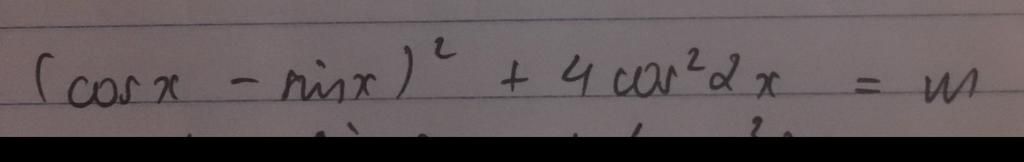 (cos x - sin x)² + 4 cos² 2x = m